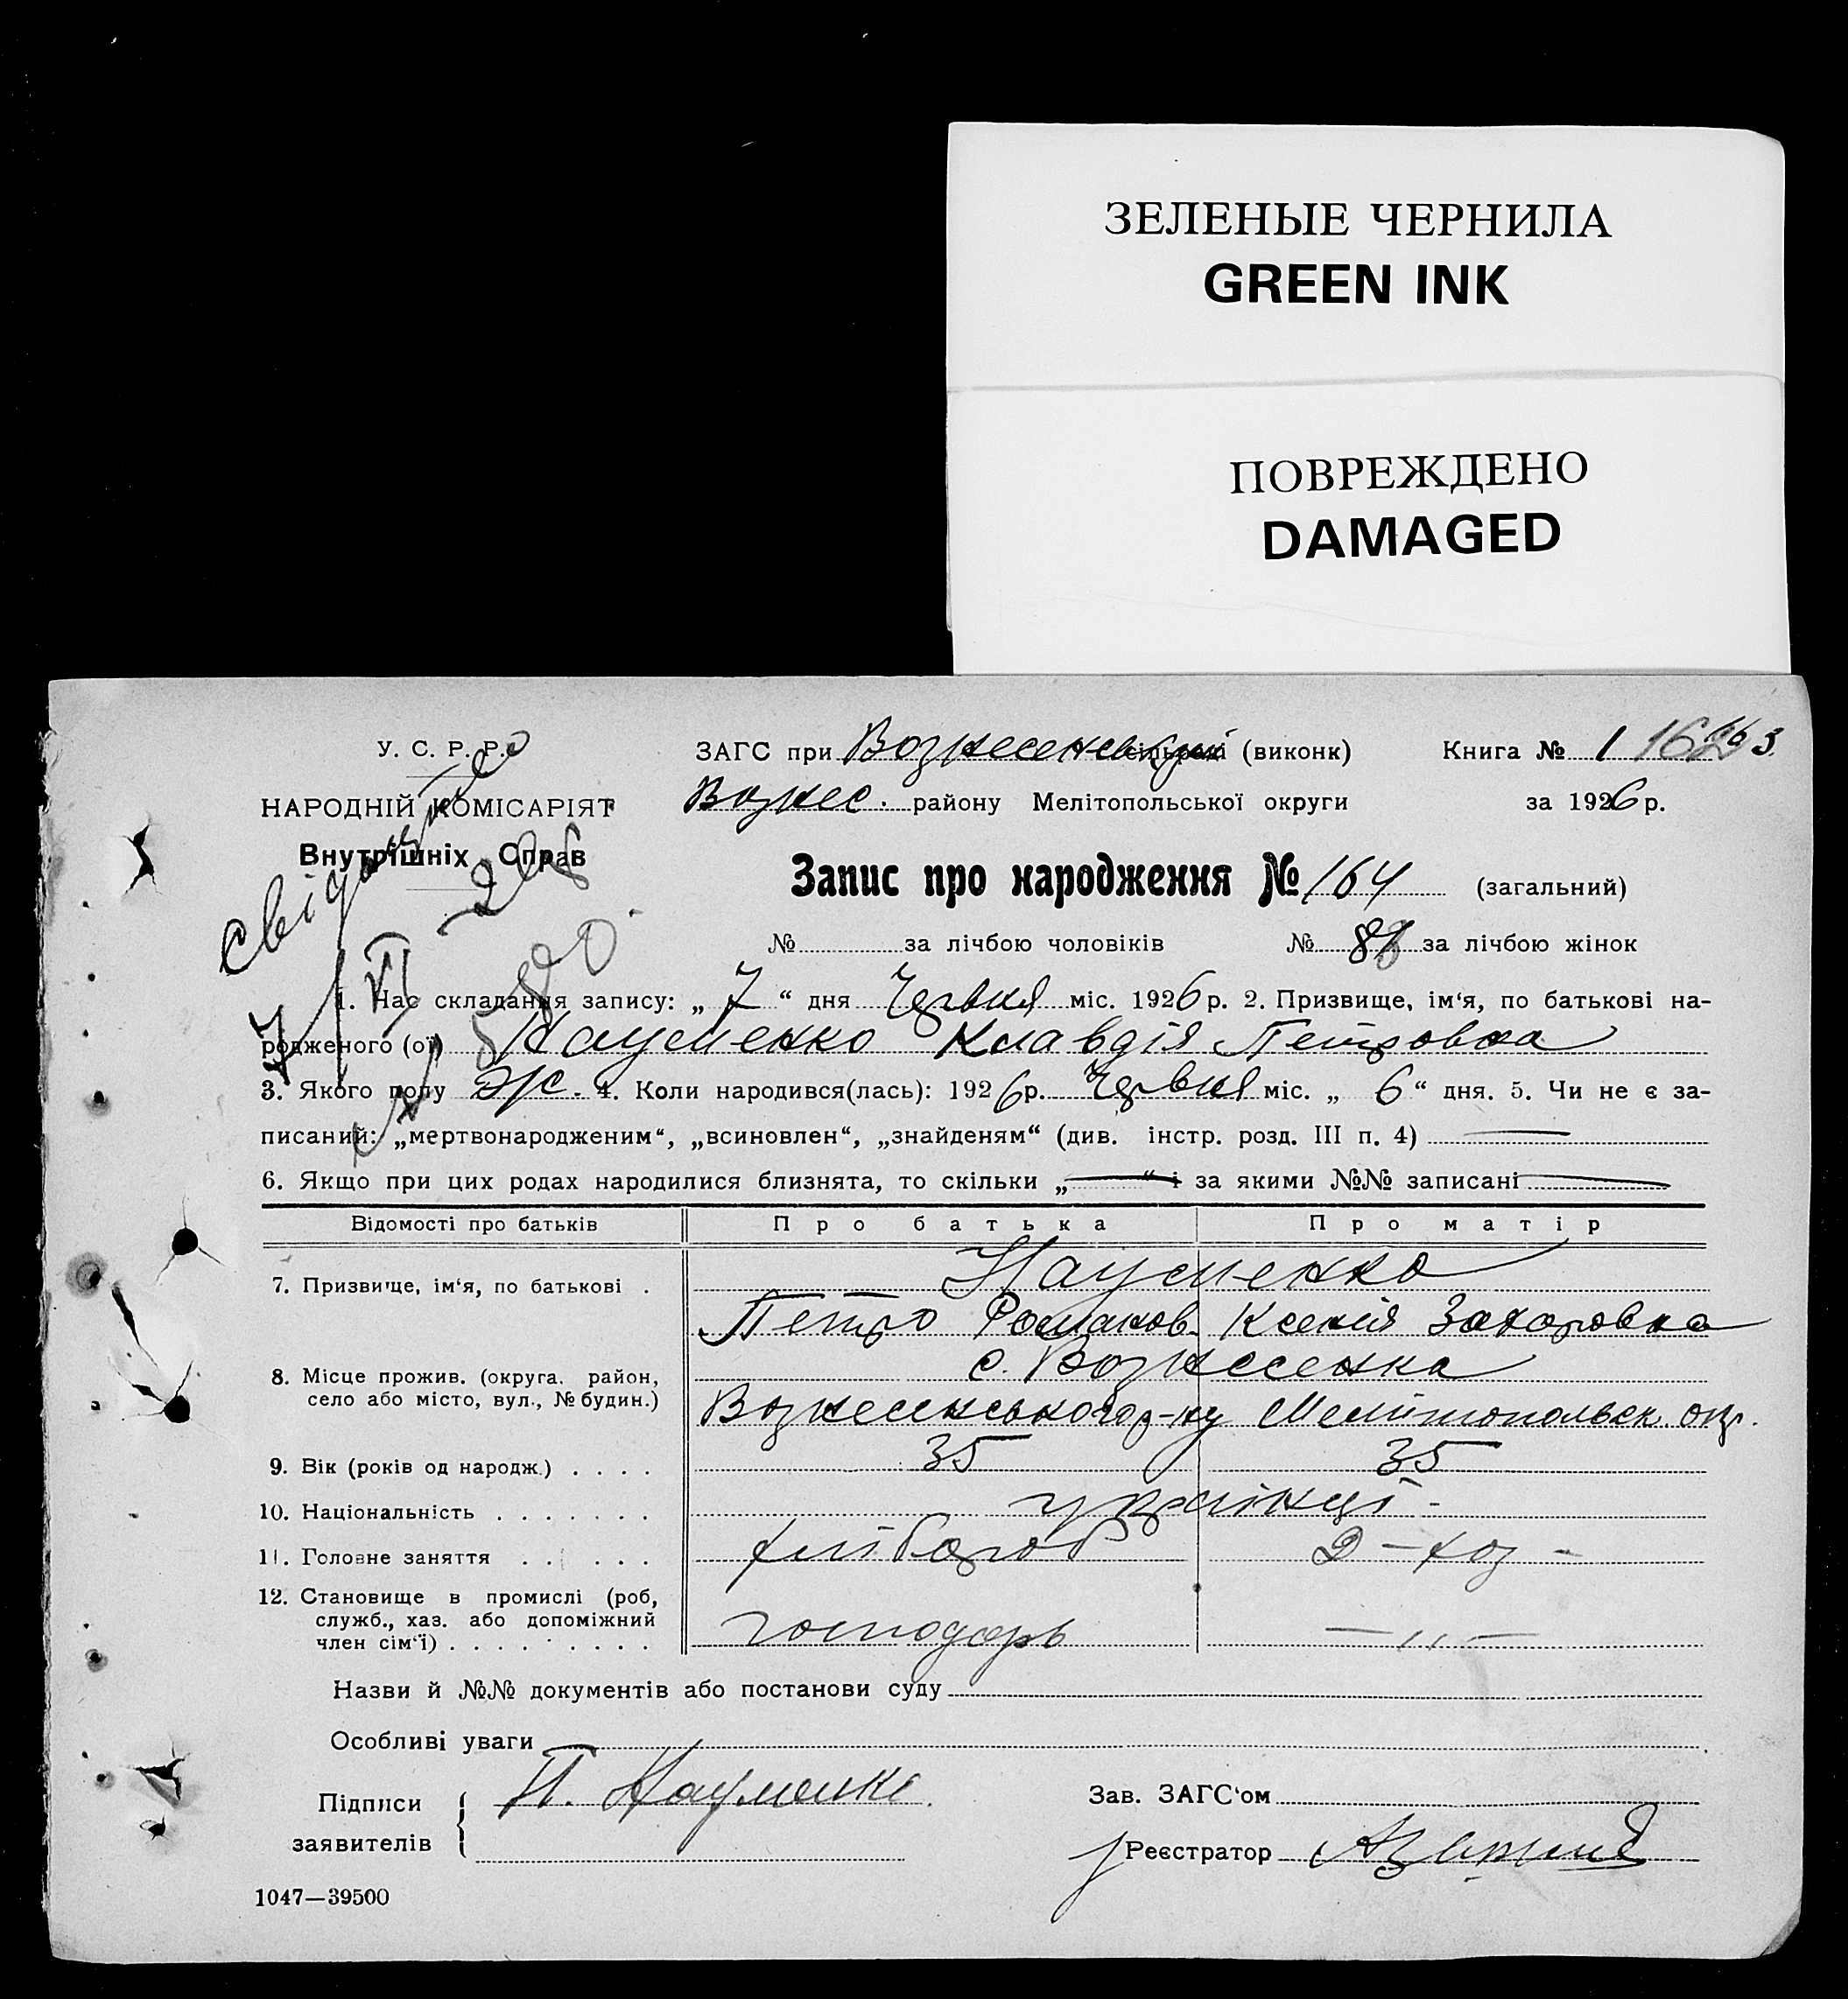 ЗЕЛЕНЫЕ ЧЕРНИЛА
GREEN INK
ПОВРЕЖДЕНО
DAMAGED
У. С. Р. Р.
НАРОДНІЙ КОМІСАРІЯТ
Внутрішніх Справ
ЗАГС при Вознесенський сільраді (виконк) Книга № 1
Вознес. району Мелітопольської округи за 1926 р.
Запис про народження № 164 (загальний)
№ за лічбою чоловіків № за лічбою жінок
1. Час складання запису: „ 7 “ дня Червня міс. 1926 р. 2. Призвище, ім‘я, по батькові на-
родженого (ої) Науменко Клавдія Петровна
3. Якого полу Ж. 4. Коли народився(лась): 1926 р. Червня міс. „ 6 “ дня. 5. Чи не є за-
писаний: „мертвонародженим“, „всиновлен“, „знайденям“ (див. інстр. розд. III п. 4) —
6. Якщо при цих родах народилися близнята, то скільки „—“ і за якими №№ записані —
Відомості про батьків Про батька Про матір
7. Призвище, ім‘я, по батькові . Науменко
Петро Романов. Ксенія Захаровна
8. Місце прожив. (округа, район, село або місто, вул., № будин.) с. Вознесенка
Вознесенського р-ну Мелітопольск. окр.
9. Вік (років од народж.) . . . . 35 35
10. Національність . . . . . . . українці
11. Головне заняття . . . . . хлібороб Д-хоз-
12. Становище в промислі (роб,
служб., хаз. або допоміжний
член сім‘ї) . . . . . . . . . господарь — ,, —
Назви й №№ документів або постанови суду
Особливі уваги
Підписи П. Науменко Зав. ЗАГС‘ом
заявителів Реєстратор
1047—39500